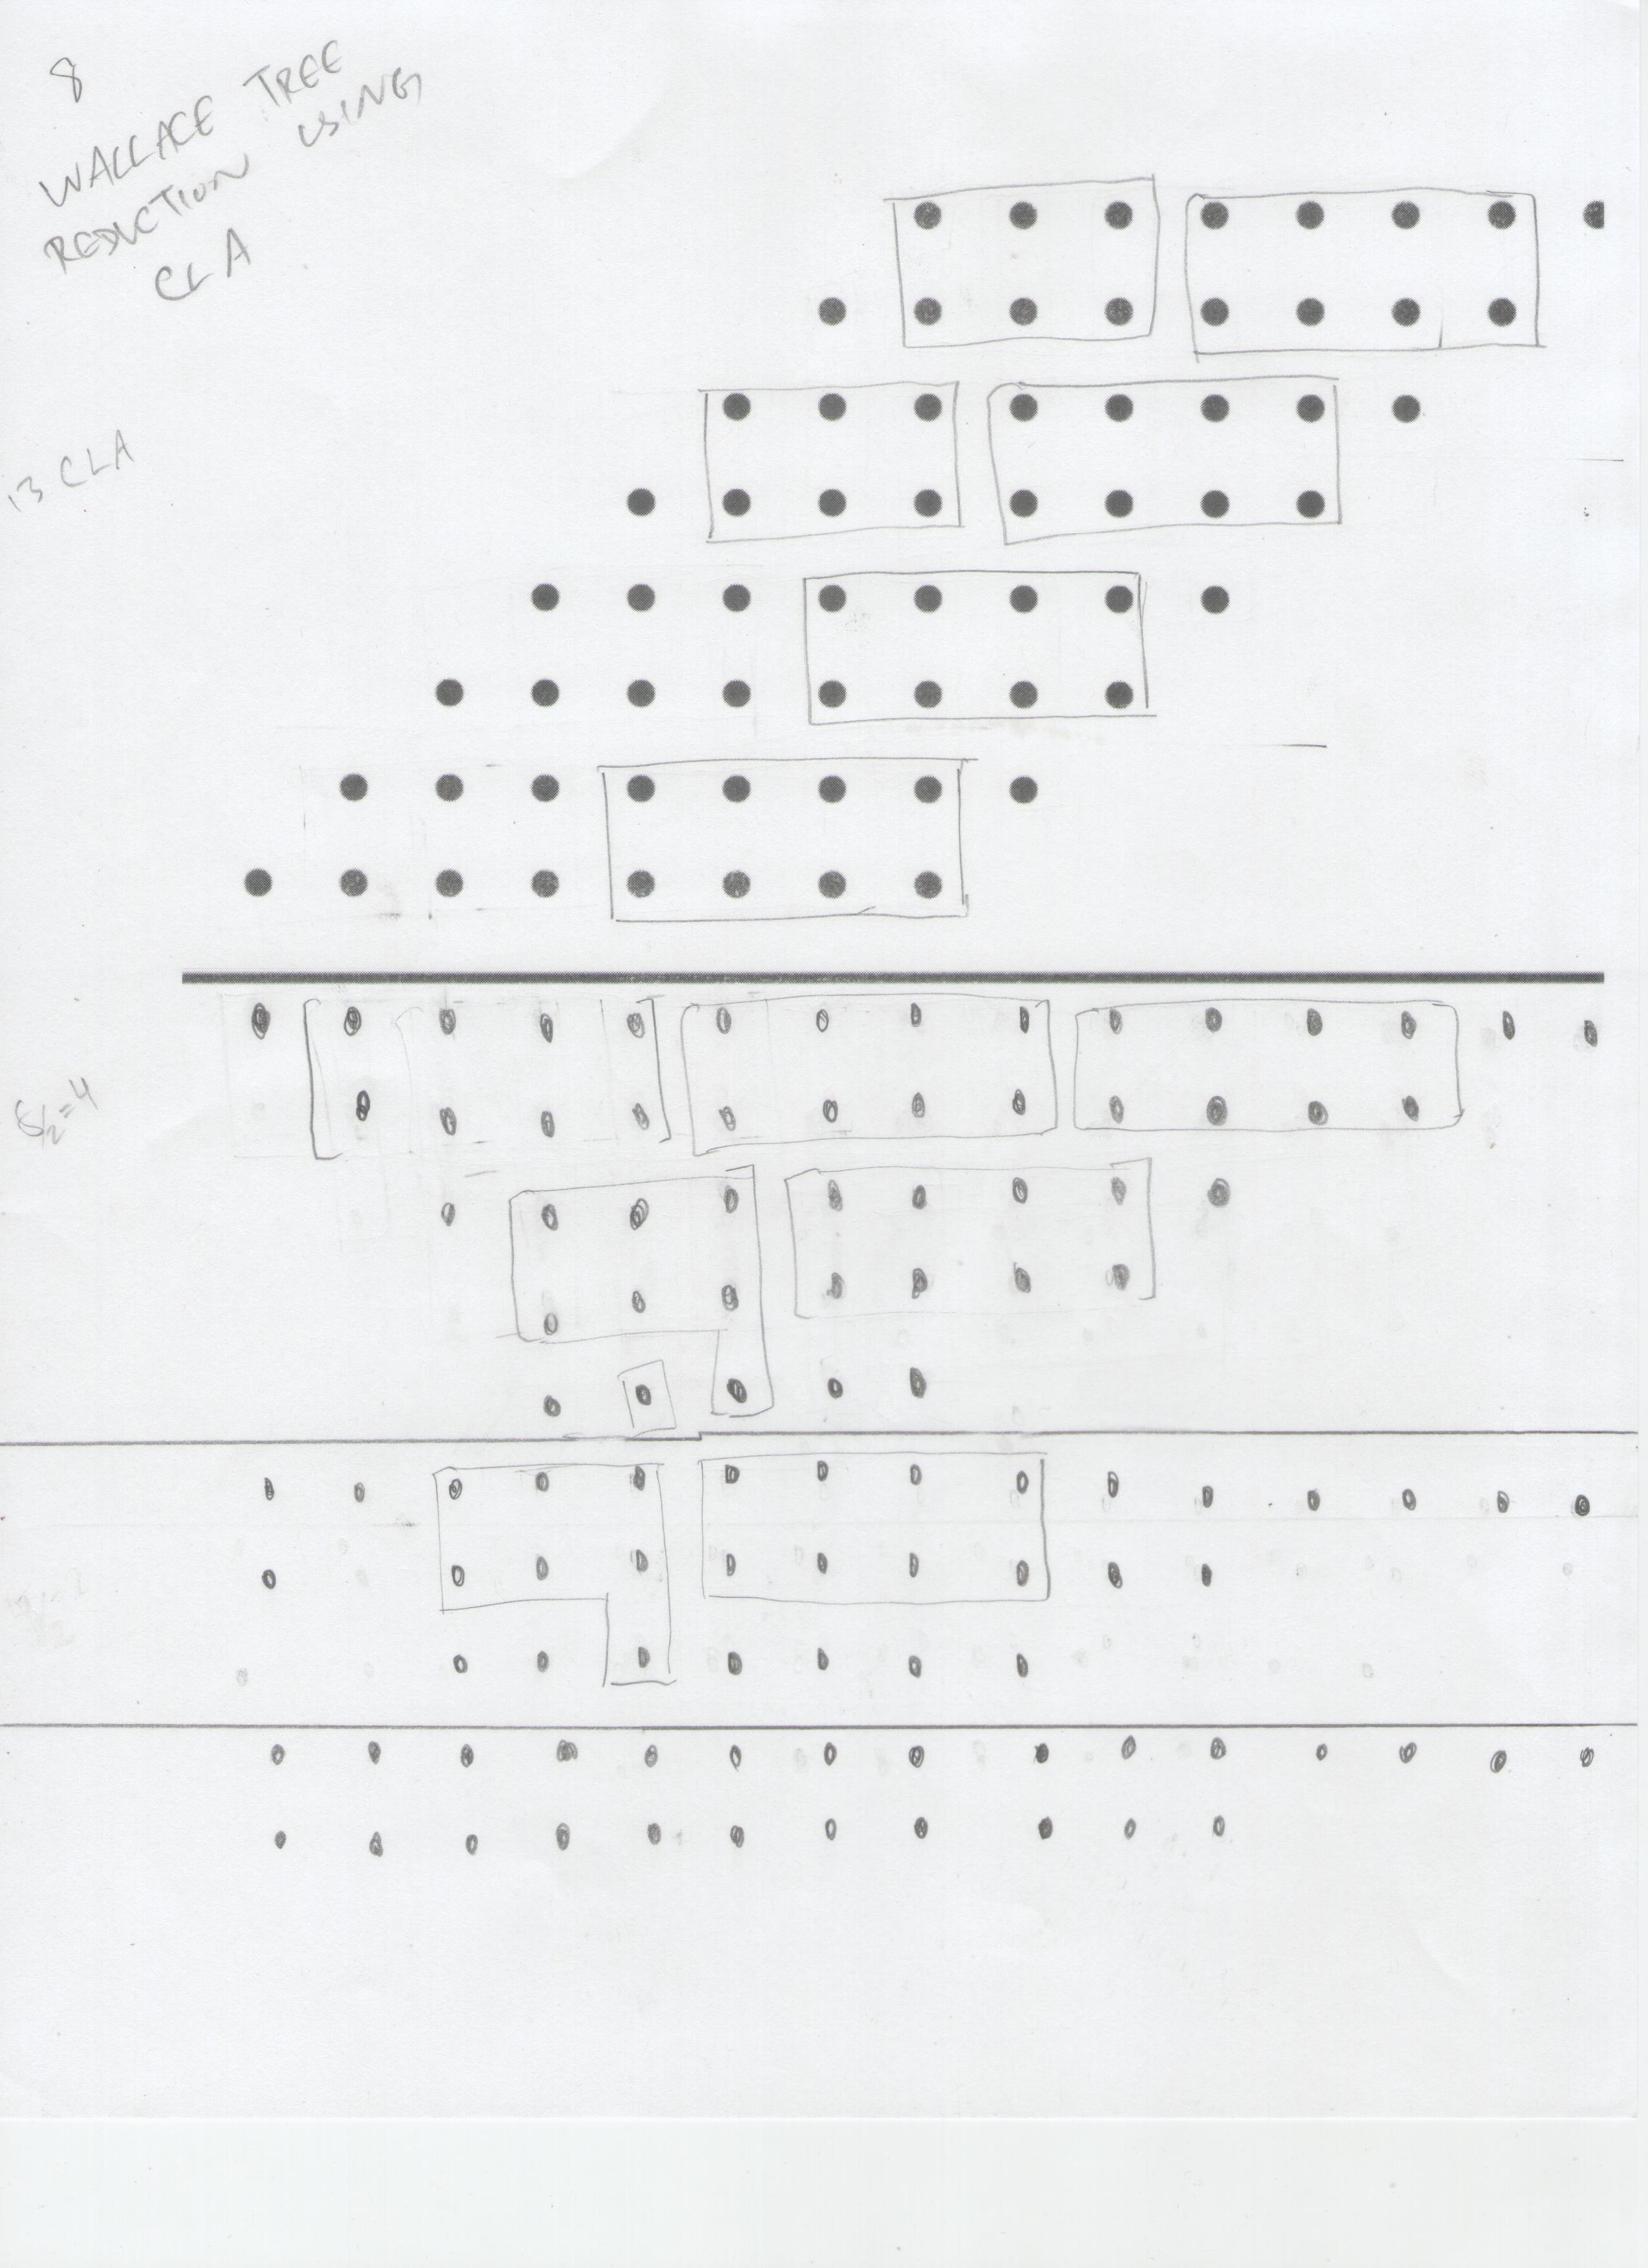 8
WALLACE TREE
REDUCTION USING
CLA
13 CLA
8/2=4